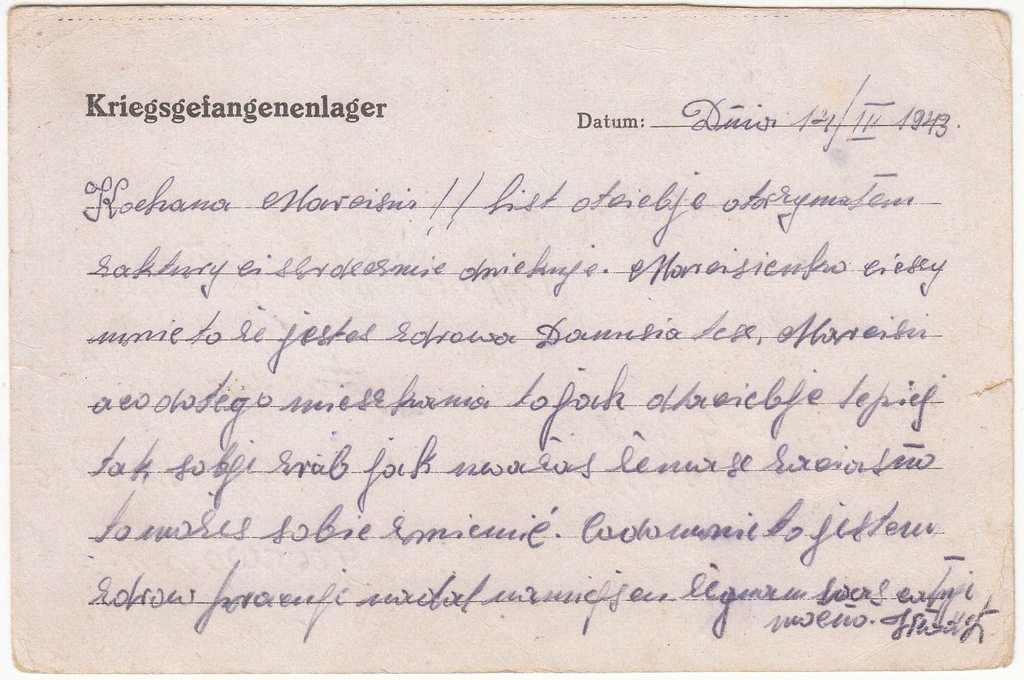 Kriegsgefangenenlager
Datum: Dnia 14/III 1943.
Kochana Marcisiu!! list otciebje otrzymałem
zaktury ci serdecznie dziekuje. Marcisieńko cieszy
mnie to że jestes zdrowa Danusia tesz, Marcisiu
acodotego mieszkania tojak dlaciebje lepiej
tak sobje zrób jak uważas że masz zaciasno
tomożes sobie zmienić. Codomnie to jestem
zdrow pracuje nadal na miejscu żegnam was całuje
mocno.